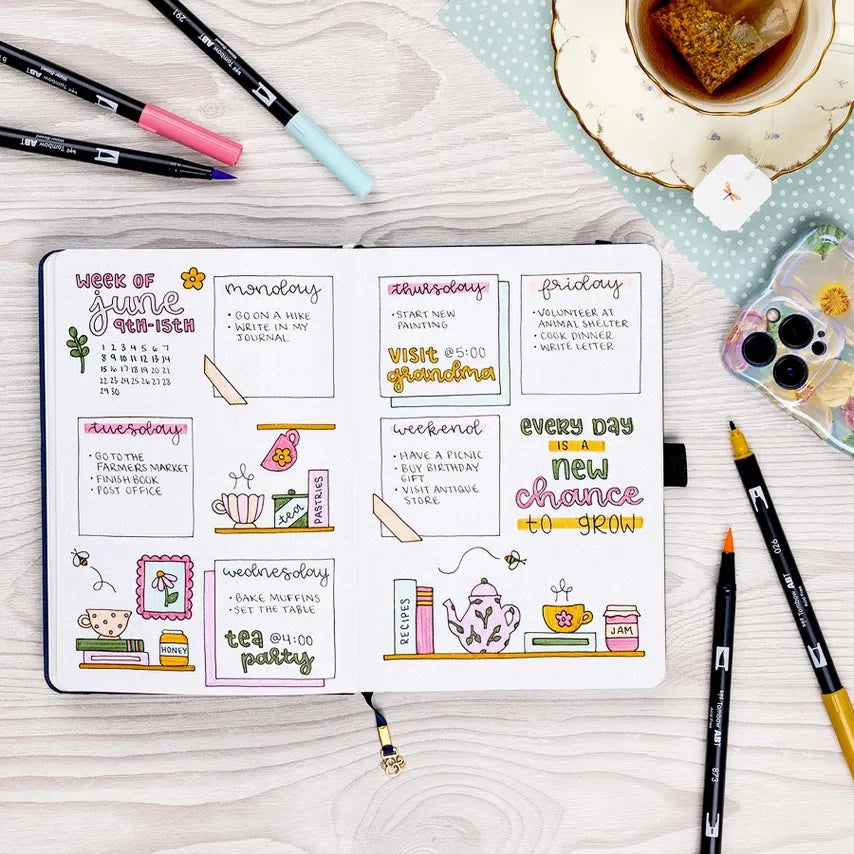 WEEK OF
june
9TH-15TH
1 2 3 4 5 6 7
8 9 10 11 12 13 14
15 16 17 18 19 20 21
22 23 24 25 26 27 28
29 30
monday
• GO ON A HIKE
• WRITE IN MY
JOURNAL
tuesday
• GO TO THE
FARMERS MARKET
• FINISH BOOK
• POST OFFICE
tea
PASTRIES
HONEY
wednesday
• BAKE MUFFINS
• SET THE TABLE
tea @4:00
party
thursday
• START NEW
PAINTING
VISIT @5:00
grandma
friday
• VOLUNTEER AT
ANIMAL SHELTER
• COOK DINNER
• WRITE LETTER
weekend
• HAVE A PICNIC
• BUY BIRTHDAY
GIFT
• VISIT ANTIQUE
STORE
EVERY DAY
IS A
new
chance
to GROW
RECIPES
JAM
291
Tombow ABT
Tombow ABT
Tombow ABT
026
Tombow ABT
873